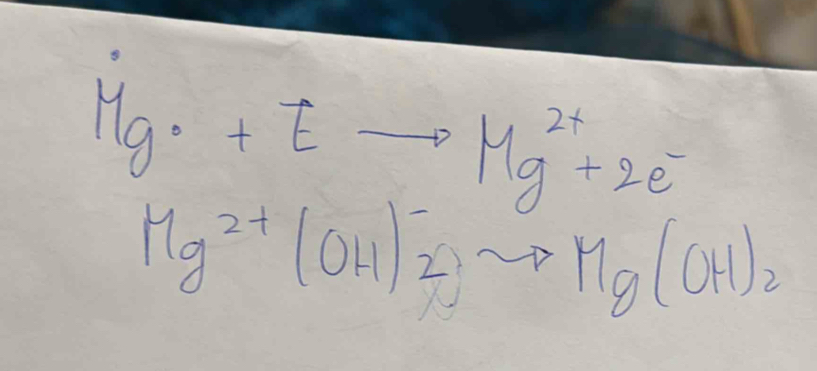 Ṁg· + E → Mg²⁺ + 2e⁻
Mg²⁺ (OH)₂⁻ → Mg(OH)₂